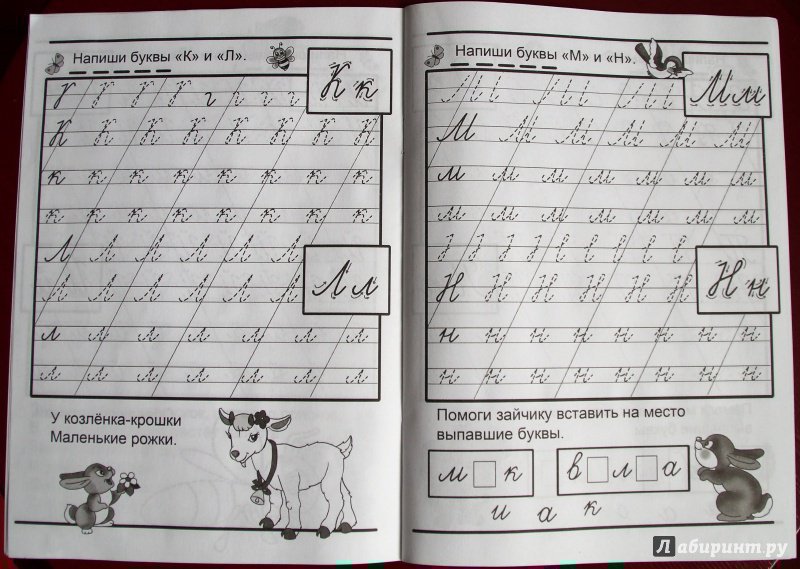 Напиши буквы «К» и «Л».
К к
К К К К К К К К
к к к к к к к к
к к к к к к к к
Л Л Л Л Л Л
Л л
Л Л Л Л Л Л
л л л л л л л л
л л л л л л л л
У козлёнка-крошки
Маленькие рожки.
Напиши буквы «М» и «Н».
М м
М М М М М М
м м м м м м м
м м м м м м м
Н н
Н Н Н Н Н Н
н н н н н н н н
н н н н н н н н
Помоги зайчику вставить на место
выпавшие буквы.
м□к
в□л□а
и а к
Лабиринт.ру